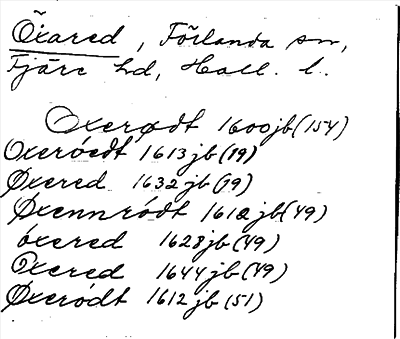 Öxared, Förlanda sn,
Fjäre hd, Hall. l.
Oxerødt 1600 jb (154)
Oxeröedt 1613 jb (19)
Øxered 1632 jb (19)
Øxennrödt 1610 jb (49)
óxered 1628 jb (49)
Oxered 1644 jb (49)
Øxerödt 1612 jb (51)